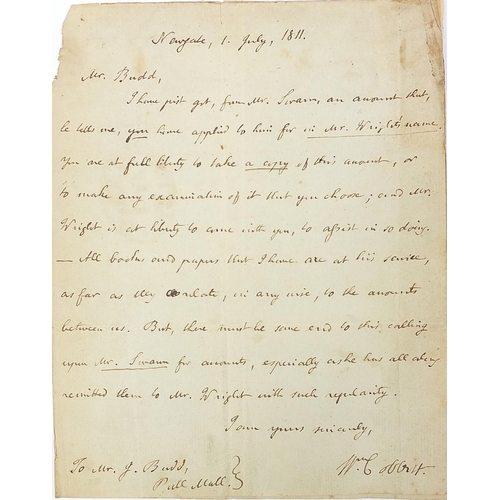 Newgate, 1. July, 1811.
Mr. Budd,
I have just got, from Mr. Swann, an amount that,
he tells me, you have applied to him for in Mr. Wright's name.
You are at full liberty to take a copy of this amount, or
to make any examination of it that you choose; and Mr.
Wright is at liberty to come with you, to assist in so doing.
— All books and papers that I have are at his service,
as far as they relate, in any wise, to the amounts
between us. But, there must be some end to this calling
upon Mr. Swann for amounts, especially as he has all along
remitted them to Mr. Wright with such regularity.
I am yours sincerely,
Wm. Cobbett.
To Mr. J. Budd,
Pall Mall.